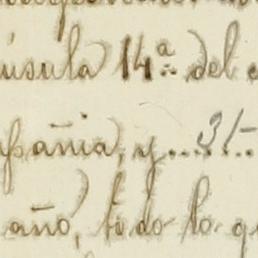 úsula 14ª del c
pañia, y....31-..
año, todo lo q